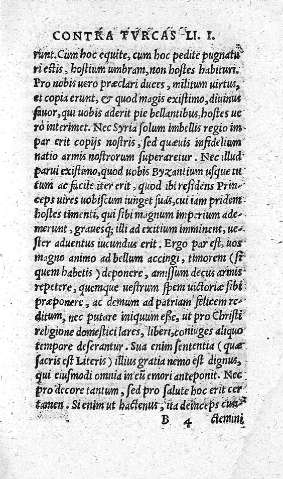 CONTRA TVRCAS LI. I.
runt. Cum hoc equite, cum hoc pedite pugnatu
ri estis, hostium umbram, non hostes habituri.
Pro nobis uero præclari duces, militum uirtus,
et copia erunt, & quod magis existimo, diuinus
fauor, qui uobis aderit pie bellantibus, hostes ue
rò interimet. Nec Syria solum imbellis regio im
par erit copijs nostris, sed quæuis infidelium
natio armis nostrorum superaretur. Nec illud
parui existimo, quod uobis Byzantium usque tu
tum ac facile iter erit, quod ibi residens Prin-
ceps uires uobiscum iunget suas, cui iam pridem
hostes timenti, qui sibi magnum imperium ade-
merunt, grauesq; illi ad exitium imminent, ue-
ster aduentus iucundus erit. Ergo par est, uos
magno animo ad bellum accingi, timorem (si
quem habetis) deponere, amissum decus armis
repetere, quemque uestrum spem uictoriæ sibi
præponere, ac demum ad patriam felicem re-
ditum, nec putare iniquum esse, ut pro Christi
religione domestici lares, liberi, coniuges aliquo
tempore deserantur. Sua enim sententia (quæ
sacris est Literis) illius gratia nemo est dignus,
qui eiusmodi omnia in eū amori anteponit. Nec
pro decore tantum, sed pro salute hoc erit cer
tamen. Si enim ut hactenus, ita deinceps
B 4 clemini